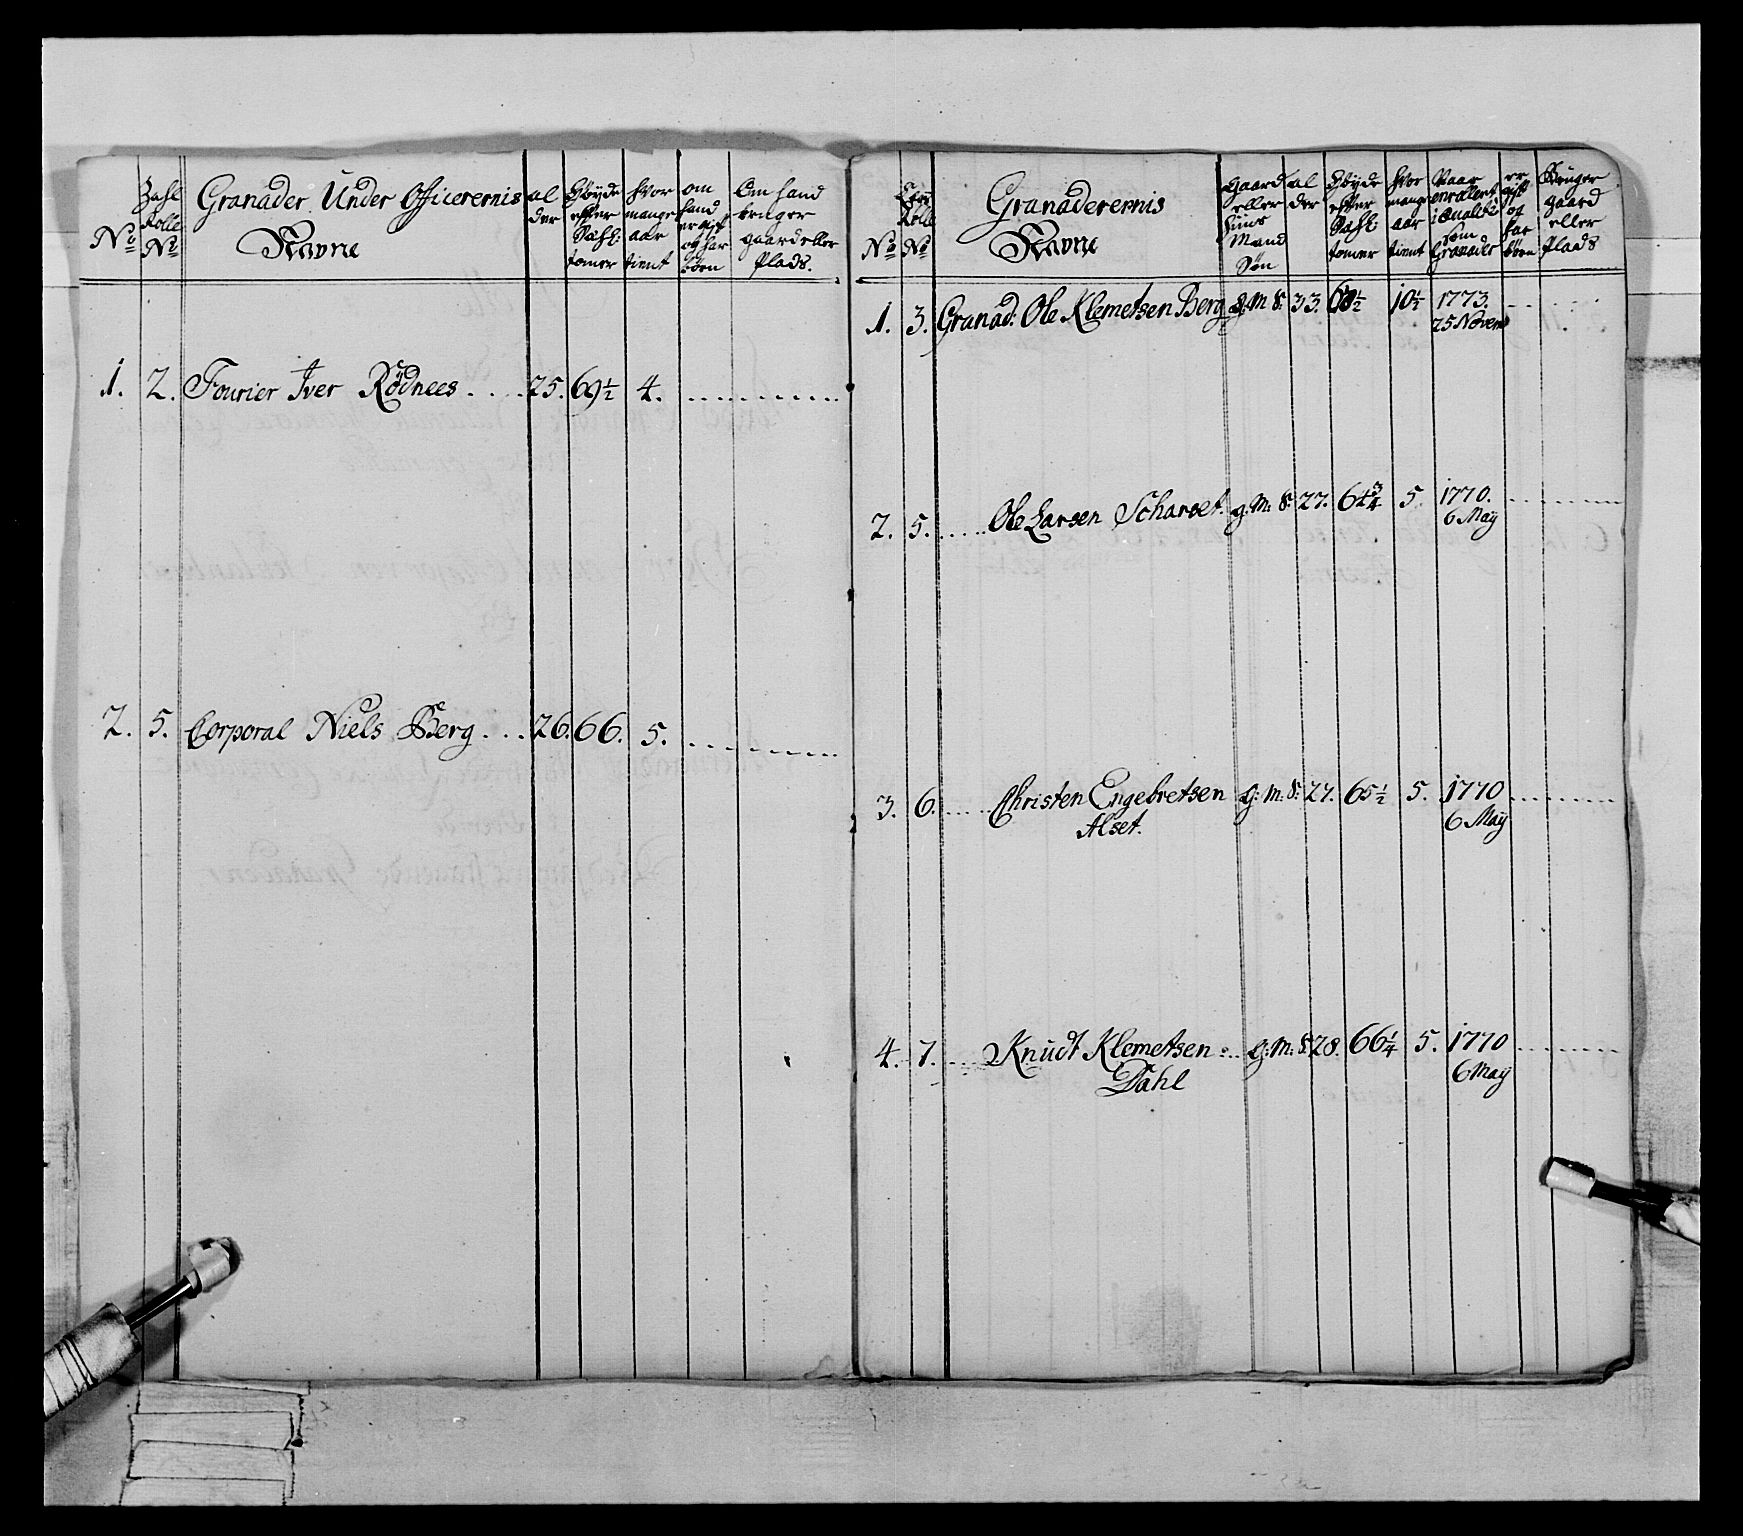 No
Zahl Rolle No
Granader Under Officerernis Navne
al der
Høyde efter Sahl: tomer
hvor mange aar tient
om hand er gift og har børn
Om hand bruger gaard eller Plads.
1. 2. Fourier Iver Rödnees . . . . 25. 69½ 4. . . . . . . . . .
2. 5. Corporal Niels Berg . . . 26. 66. 5. . . . . . . . .
No
Rolle No
Granaderernis Navne
Gaard eller Huus Mand Søn
al der
Høyde efter Sahl: tomer
hvor mange aar tient
Naar enrollert i Qualité som Granader
er gift og har børn
Bruger gaard eller Plads
1. 3. Granad: Ole Klemetsen Berg g: M S: 33. 10½ 1773. . . . . .
25 Novem
2. 5. . . . . . Ole Larsen Scharset. g: M: S: 27. 64¾ 5. 1770. . . . . . . .
6 May
3. 6. . . . . . Christen Engebretsen g: M: S: 27. 65½ 5. 1770 . . . . . . . .
Alset. 6 May
4. 7. . . . . Knudt Klemetsen . . . g: M: S: 28. 66¼ 5. 1770 . . . . . . . .
Dahl 6 May